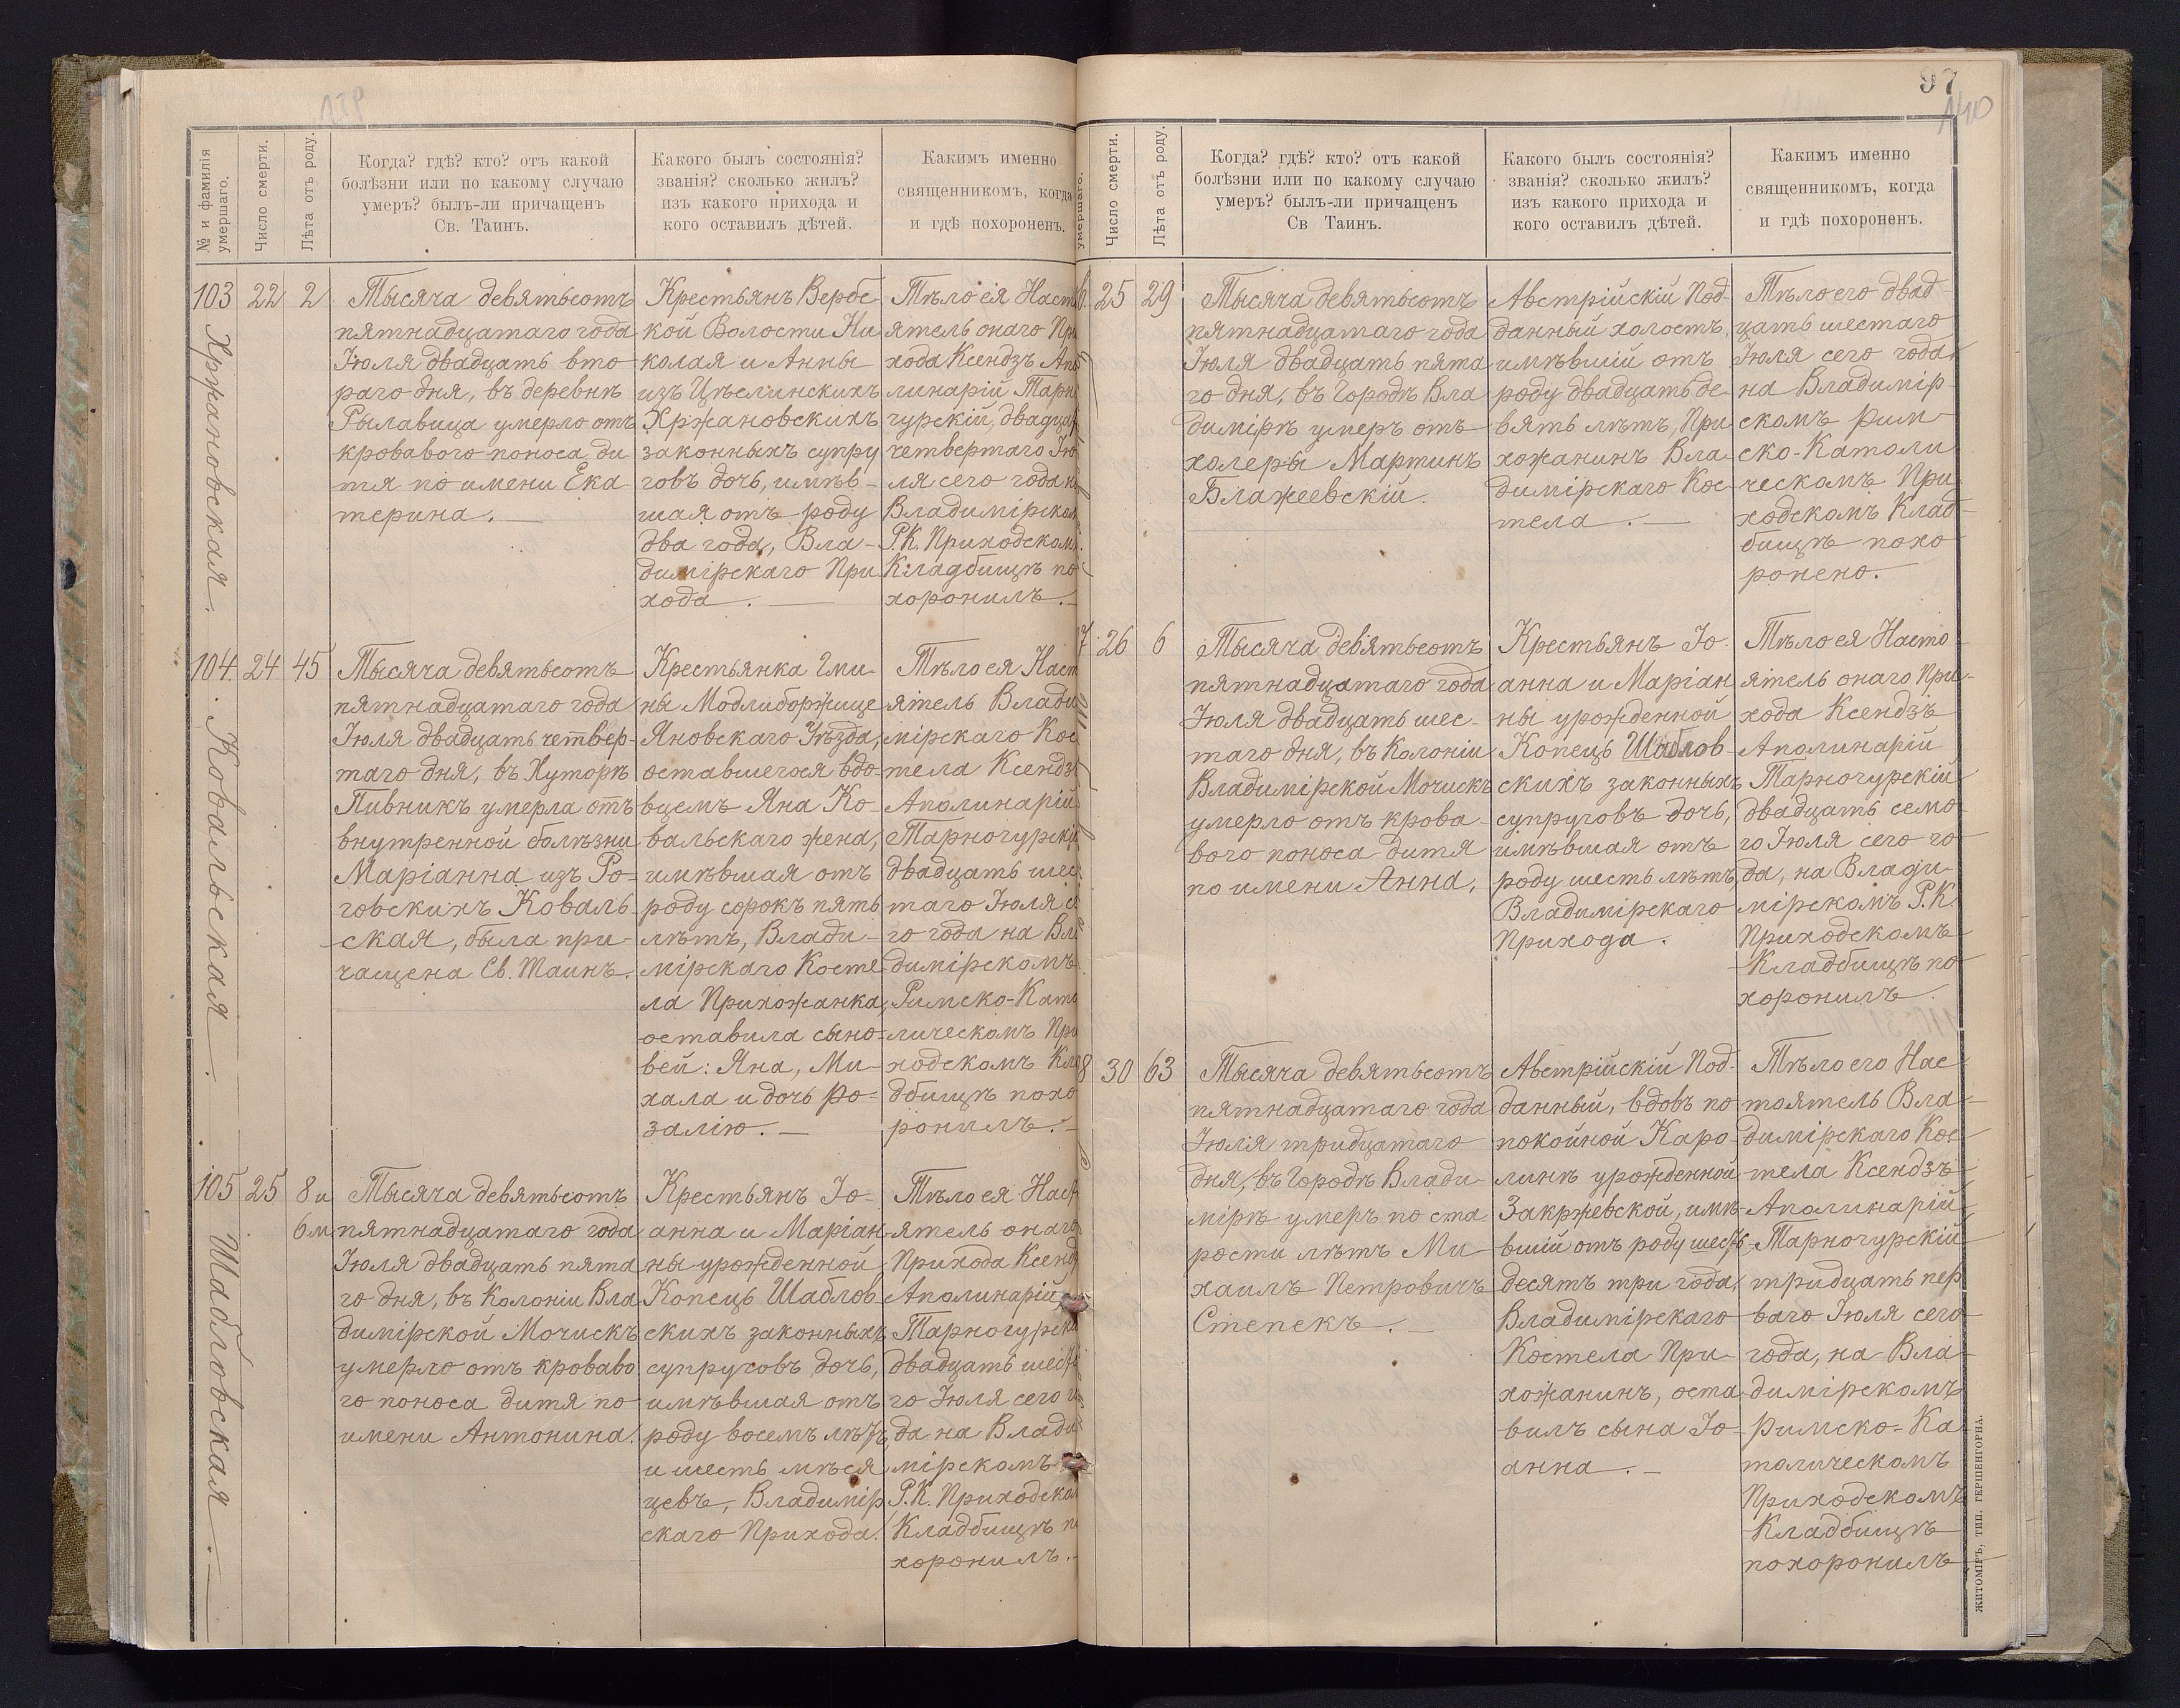 139
№ и фамилія умершаго.
Число смерти.
Лѣта отъ роду.
Когда? гдѣ? кто? отъ какой
болѣзни или по какому случаю
умеръ? былъ-ли причащенъ
Св. Таинъ.
Какого былъ состоянія?
званія? сколько жилъ?
изъ какого прихода и
кого оставилъ дѣтей.
Какимъ именно
священникомъ, когда
и гдѣ похороненъ.
103
Хржановская.
22
2
Тысяча девятьсотъ
пятнадцатаго года
Іюля двадцать вто
раго дня, въ деревнѣ
Рылавица умерло отъ
кровавого поноса ди
тя по имени Ека
терина.
Крестьянъ Вербс
кой Волости Ни
колая и Анны
изъ Цѣслинскихъ
Хржановскихъ
законныхъ супру
говъ дочь, имѣв-
шая отъ роду
два года, Вла-
димірскаго При
хода.
Тѣло ея Наст
ятель онаго При
хода Ксендзъ Апо
линарій Тарно
гурскій, двадцат
четвертаго Ію
ля сего года на
Владимірском
Р.К. Приходском
Кладбищѣ по
хоронилъ.
104.
Ковальская.
24
45
Тысяча девятьсотъ
пятнадцатаго года
Іюля двадцать четвер-
таго дня, въ Хуторѣ
Пивникъ умерла отъ
внутренной болѣзни
Маріанна изъ Ро-
говскихъ Коваль-
ская, была при-
чащена Св. Таинъ.
Крестьянка Гми-
ны Модлиборжице
Яновскаго Уѣзда,
оставшегося вдо-
вцемъ Яна Ко-
вальскаго жена,
имѣвшая отъ
роду сорокъ пять
лѣтъ, Влади-
мірскаго Косте
ла Прихожанка,
оставила сыно-
вей: Яна, Ми-
хала и дочь Ро-
залію.
Тѣло ея Наст
ятель Влади
мірскаго Кос
тела Ксендзъ
Аполинарій
Тарногурскій
двадцать шес
таго Іюля се
го года на Вла
димірскомъ
Римско-Като
лическомъ При
ходскомъ Кла
дбищѣ похо
ронилъ.
105
Шабловская.
25
8 и
6 м
Тысяча девятьсотъ
пятнадцатаго года
Іюля двадцать пята
го дня, въ Колоніи Вла
димірской Мочискъ
умерло отъ кроваво
го поноса дитя по
имени Антонина.
Крестьянъ Іо-
анна и Маріан
ны урожденной
Копець Шаблов-
скихъ законныхъ
супруговъ дочь,
имѣвшая отъ
роду восемъ лѣтъ
и шесть мѣся
цевъ, Владимір
скаго Прихода.
Тѣло ея Наст
ятель онаго
Прихода Ксендз
Аполинарій
Тарногурскі
двадцать шест
го Іюля сего го
да на Влади
мірскомъ
Р.К. Приходском
Кладбищѣ по
хоронилъ.
97
140
умершаго.
Число смерти.
Лѣта отъ роду.
Когда? гдѣ? кто? отъ какой
болѣзни или по какому случаю
умеръ? былъ-ли причащенъ
Св Таинъ.
Какого былъ состоянія?
званія? сколько жилъ?
изъ какого прихода и
кого оставилъ дѣтей.
Какимъ именно
священникомъ, когда
и гдѣ похороненъ.
6.
25
29
Тысяча девятьсотъ
пятнадцатаго года
Іюля двадцать пята
го дня, въ Городѣ Вла
димірѣ умеръ отъ
холеры Мартинъ
Блажеевскій.
Австрійскій Под-
данный холостъ,
имѣвшій отъ
роду двадцать де-
вять лѣтъ, При
хожанинъ Вла-
димірскаго Кос
тела.
Тѣло его двад-
цать шестаго
Іюля сего года
на Владимір-
скомъ Рим
ско-Католи
ческомъ При
ходскомъ Клад-
бищѣ похо
ронено.
7
26
6
Тысяча девятьсотъ
пятнадцатаго года
Іюля двадцать шес-
таго дня, въ Колоніи
Владимірской Мочискъ
умерло отъ крова-
вого поноса дитя
по имени Анна,
Крестьянъ Іо-
анна и Маріан
ны урожденной
Копець Шаблов-
скихъ законныхъ
супруговъ дочь,
имѣвшая отъ
роду шесть лѣтъ,
Владимірскаго
Прихода.
Тѣло ея Насто
ятель онаго При-
хода Ксендзъ
Аполинарій
Тарногурскій
двадцать семо
го Іюля сего го
да, на Влади
мірскомъ Р.К.
Приходскомъ
Кладбищѣ по
хоронилъ.
8
30
63
Тысяча девятьсотъ
пятнадцатаго года
Іюля тридцатаго
дня, въ Городѣ Влади-
мірѣ умеръ по ста
рости лѣтъ Ми-
хаилъ Петровичъ
Степекъ.
Австрійскій Под-
данный, вдовъ по
покойной Каро-
линѣ урожденной
Закржевской, имѣ-
вшій отъ роду шесть
десятъ три года,
Владимірскаго
Костела При-
хожанинъ, оста
вилъ сына Іо-
анна.
Тѣло его Нас
тоятель Вла-
димірскаго Кос
тела Ксендзъ
Аполинарій
Тарногурскій
тридцать пер
ваго Іюля сего
года, на Вла-
димірскомъ
Римско-Ка
толическомъ
Приходскомъ
Кладбищѣ
похоронилъ
ЖИТОМІРЪ, ТИП. ГЕРШЕНГОРНА.